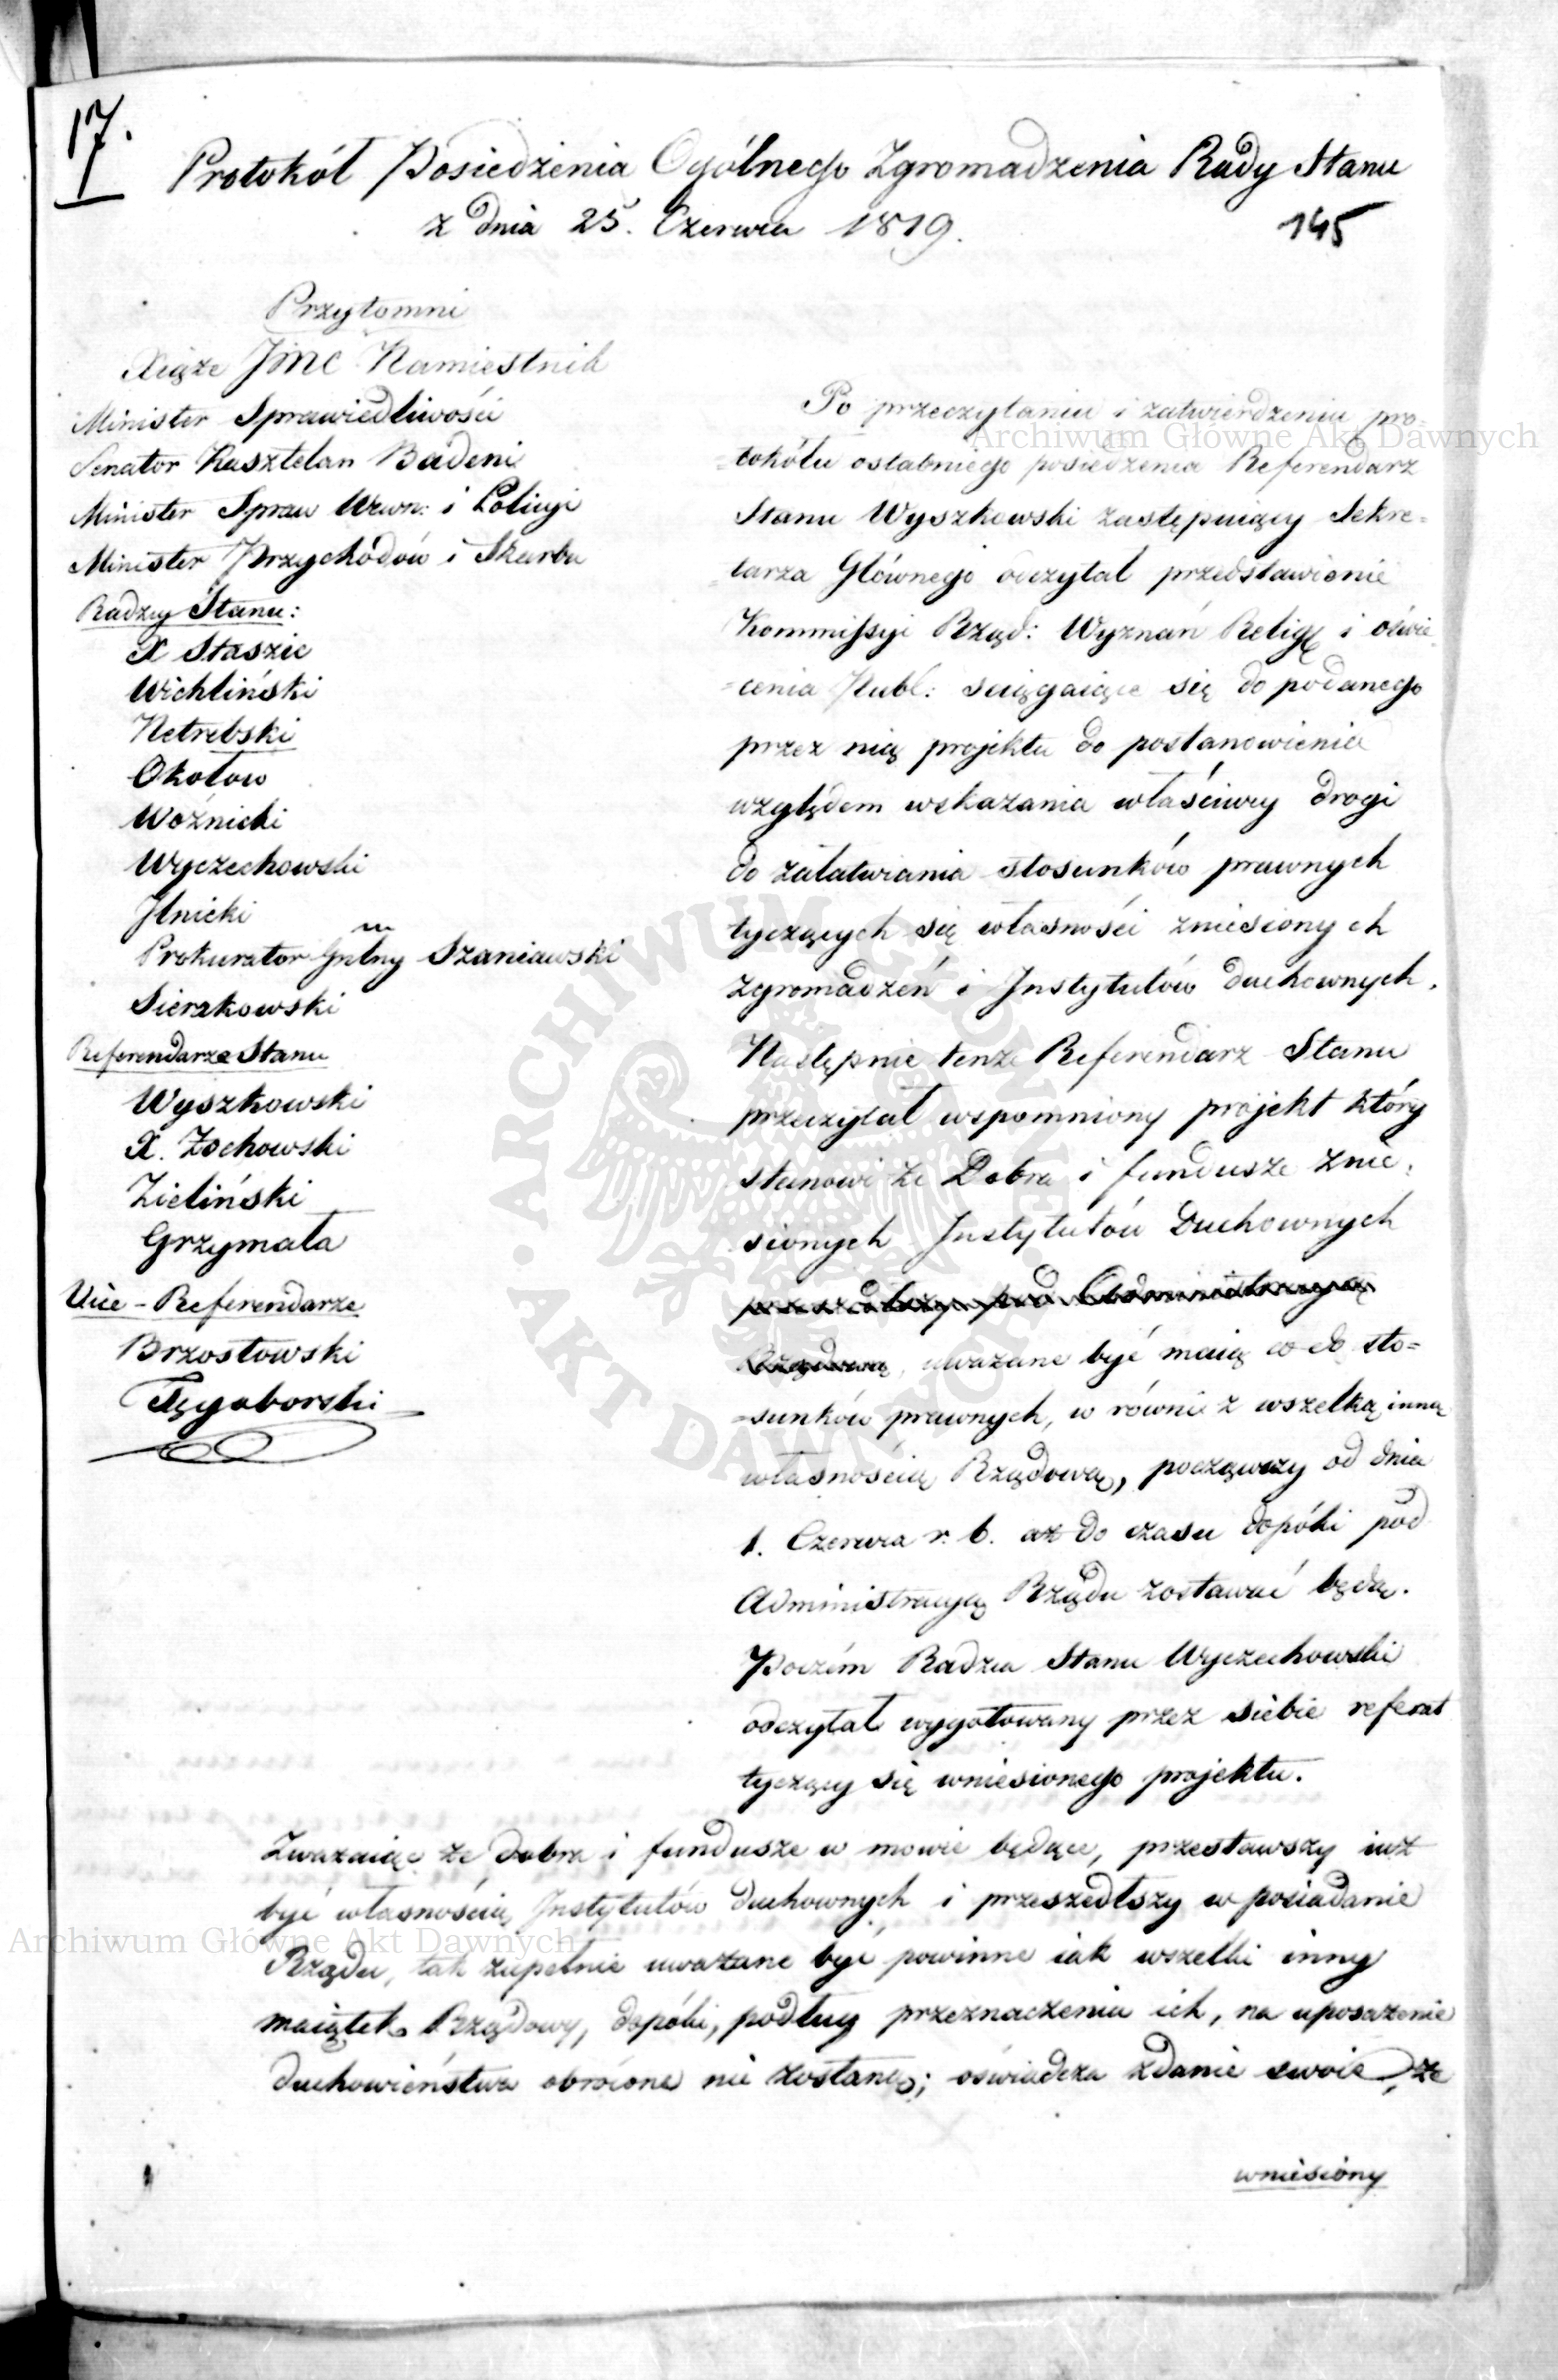 17.
Protokół Posiedzenia Ogólnego Zgromadzenia Rady Stanu
z dnia 25. Czerwca 1819.
145
Przytomni
Xiąże Jmc Namiestnik
Minister Sprawiedliwości
Senator Kasztelan Badeni
Minister Spraw Wewn: i Policyi
Minister Przychodów i Skarbu
Radzcy Stanu:
X Staszic
Wichliński
Netrebski
Okołow
Woźnicki
Wyczechowski
Ilnicki
Prokurator Gnlny Szaniawski
Sierakowski
Referendarze Stanu
Wyszkowski
X. Żochowski
Zieliński
Grzymała
Vice-Referendarze
Brzostowski
Tęgoborski
Po przeczytaniu i zatwierdzeniu pro-
tokółu ostatniego posiedzenia Referendarz
Stanu Wyszkowski zastępuiący Sekre-
tarza Głównego odczytał przedstawienie
Kommissyi Rząd: Wyznań Relig: i oświe-
cenia Publ: sciągaiące się do podanego
przez nią projektu do postanowienia
względem wskazania właściwey drogi
do załatwiania stosunków prawnych
tyczących się własności zniesionych
zgromadzeń i Instytutów duchownych.
Następnie tenże Referendarz Stanu
przeczytał wspomniony projekt który
stanowi że Dobra i fundusze znie-
sionych Instytutów Duchownych
pod Administracyą
Rządową, uważane być maią co do sto-
sunków prawnych, w równi z wszelką inną
własnością Rządową, począwszy od dnia
1. Czerwca r. b. aż do czasu dopóki pod
Administracyą Rządu zostawać będą.
Poczém Radzca Stanu Wyczechowski
odczytał wygotowany przez siebie referat
tyczący się wniesionego projektu.
Zważaiąc że dobra i fundusze w mowie będące, przestawszy iuż
być własnością Instytutów duchownych i przeszedłszy w posiadanie
Rządu, tak zupełnie uważane być powinne iak wszelki inny
maiątek Rządowy, dopóki, podług przeznaczenia ich, na uposażenie
duchowieństwa obrócone nie zostaną; oświadcza zdanie swoie, że
wniesiony
Archiwum Główne Akt Dawnych
Archiwum Główne Akt Dawnych
ARCHIWUM GŁÓWNE
AKT DAWNYCH